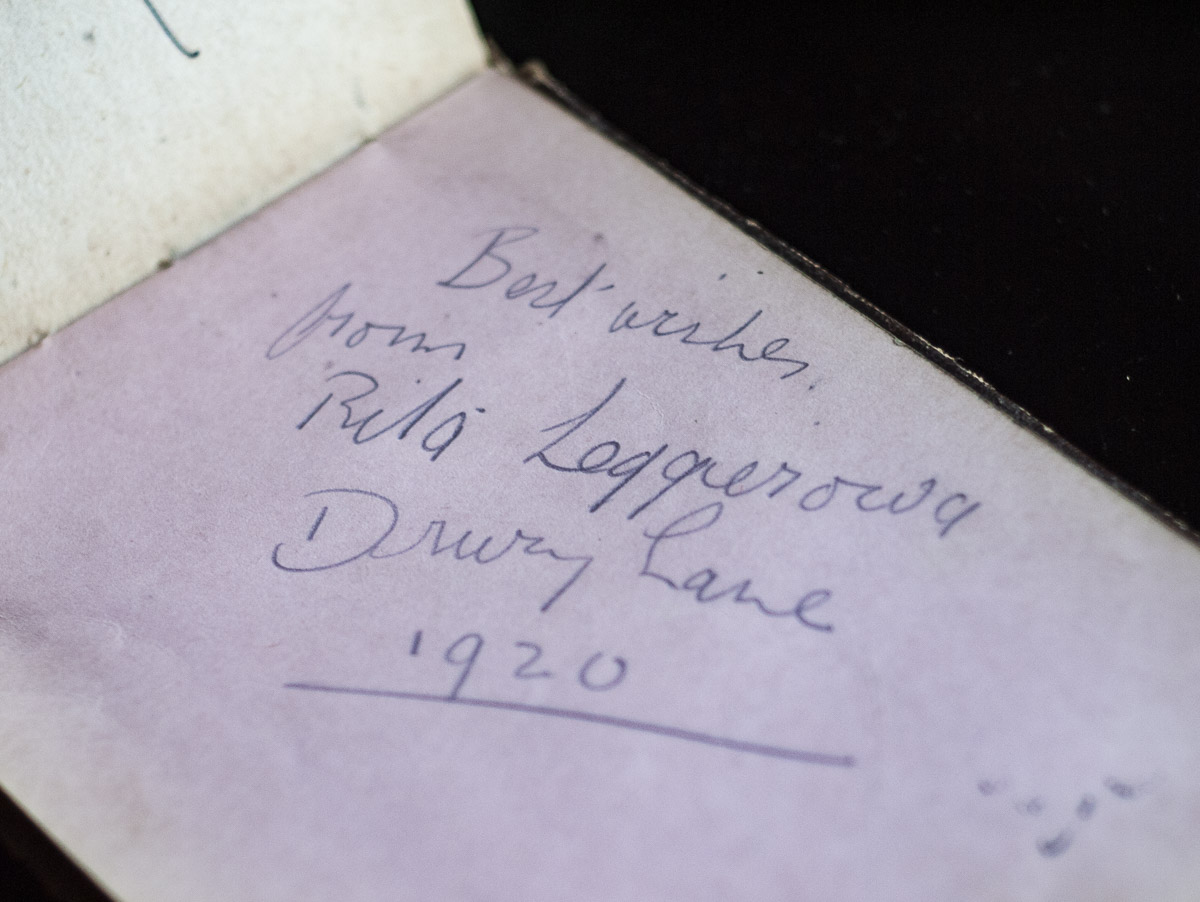 Best wishes.
from
Rita Leggerowa
Drury Lane
1920